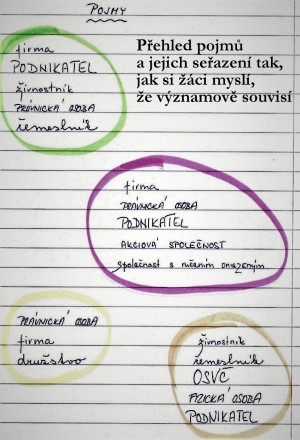 POJMY
Přehled pojmů
a jejich seřazení tak,
jak si žáci myslí,
že významově souvisí
firma
PODNIKATEL
živnostník
PRÁVNICKÁ OSOBA
řemeslník
firma
PRÁVNICKÁ OSOBA
PODNIKATEL
AKCIOVÁ SPOLEČNOST
společnost s ručením omezeným
PRÁVNICKÁ OSOBA
firma
družstvo
živnostník
řemeslník
OSVČ
FYZICKÁ OSOBA
PODNIKATEL